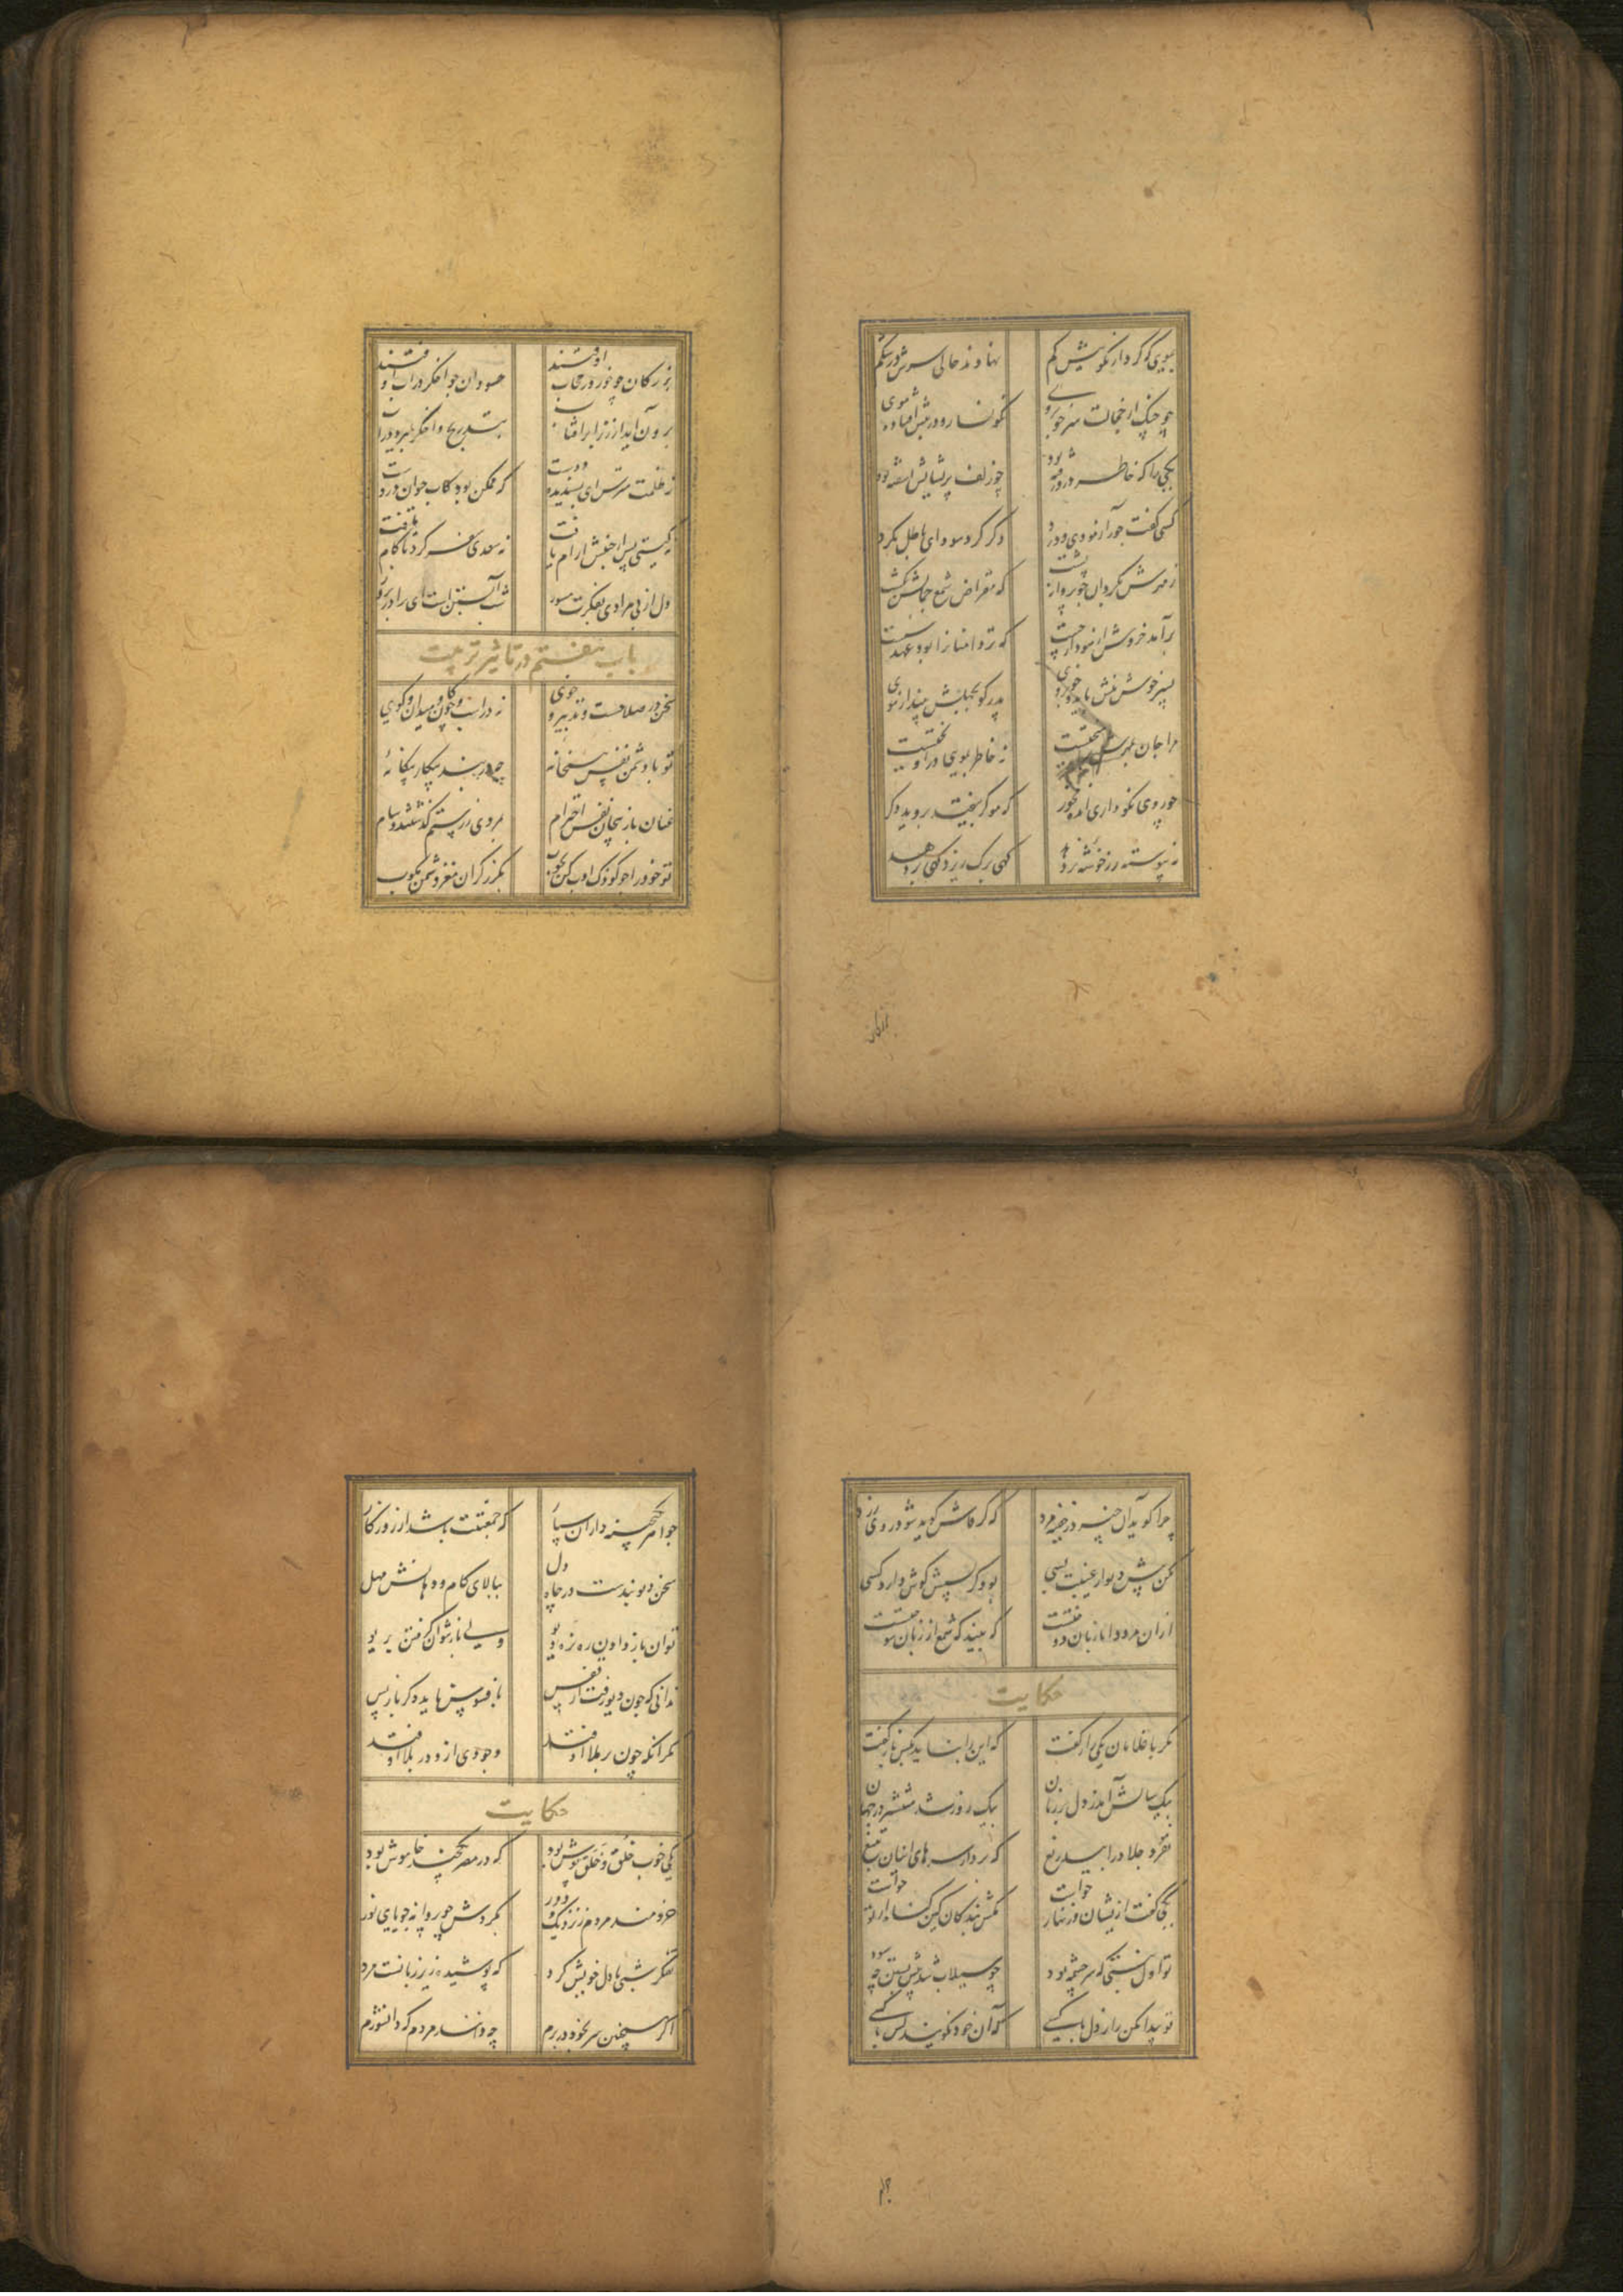 بمویی که کرد از نکوییش کم نهادند حالی سرش در شکم
چو چنگ از خجالت سر خوبروی نگونسار و در پیش افتاده موی
یکی را که خاطر درو رفته بود چو زلف پریشانش آشفته بود
کسی گفت جور آزمودی و درد دگر گرد سودای باطل مگرد
ز مهرش بگردان چو پروانه پشت که مقراض شمع جمالش بکشت
برآمد خروش از نمودار چست که تردامنانرا بود عهد سست
پسر خوش منش باید و خوبروی پدر گو بجهلش بینداز موی
مرا جان بمهرش نه خاطر بمویی درآویختست
چو روی نکو داری انده مخور که مو گر بیفتد بروید دگر
نه پیوسته رز خوشه تر دهد گهی برگ ریزد گهی بر دهد
بزرگان
بزرگان چو خور در حجاب اوفتند حسودان چو اخگر در آب اوفتند
برون آید از زیر ابر آفتاب بتدریج و اخگر بمیرد در آب
ز ظلمت مترس ای پسندیده دوست که ممکن بود کاب حیوان دروست
نه گیتی پس از جنبش آرام یافت نه سعدی سفر کرد تا کام یافت
دل از بی مرادی بفکرت مسوز شب آبستن است ای برادر بروز
باب هفتم در تاثیر تربیت
سخن در صلاحست و تدبیر و خوی نه در اسب و چوگان و میدان و گوی
تو با دشمن نفس همخانهٔ چه در بند پیکار بیگانهٔ
عنان باز پیچان نفس از حرام بمردی ز رستم گذشتند و سام
تو خود را چو کودک ادب کن بچوب بگرز گران مغز دشمن مکوب
چرا گوید آن چیز در خفیه مرد که گر فاش گردد شود روی زرد
مکن پیش دیوار غیبت بسی بود کز پسش گوش دارد کسی
ازان مرد دانا زبان دوختست که بیند که شمع از زبان سوختست
حکایت
تکش با غلامان یکی راز گفت که این را نباید بکس باز گفت
بیک سالش آمد ز دل بر زبان بیک روز شد منتشر در جهان
بفرمود جلاد را بیدریغ که بردار سرهای اینان بتیغ
یکی گفت ازیشان و زنهار خواست مکش بندگان کین گناه از تو خواست
تو اول نبستی که سرچشمه بود چو سیلاب شد پیش بستن چه سود
تو پیدا مکن راز دل با کسی که آن خود نگویند کس با کسی
جواهر بگنجینه داران سپار که جمعیتت باشد از روزگار
سخن دیو بندست در چاه دل ببالای کام و دهانش مهل
توان باز دادن ره نره دیو ولی باز نتوان گرفتن بریو
ندانی که چون دیو رفت از قفس بافسوس ناید دگر باز پس
مگر آنکه چون بر ملا اوفتد وجودی ازو در بلا اوفتد
حکایت
یکی خوب خلق و خلق پوش بود که در مصر یکچند خاموش بود
خردمند مردم ز نزدیک و دور بگردش چو پروانه جویای نور
تفکر شبی با دل خویش کرد که پوشیده زیر زبانست مرد
اگر همچنین سر بخود در برم چه دانند مردم که دانشورم